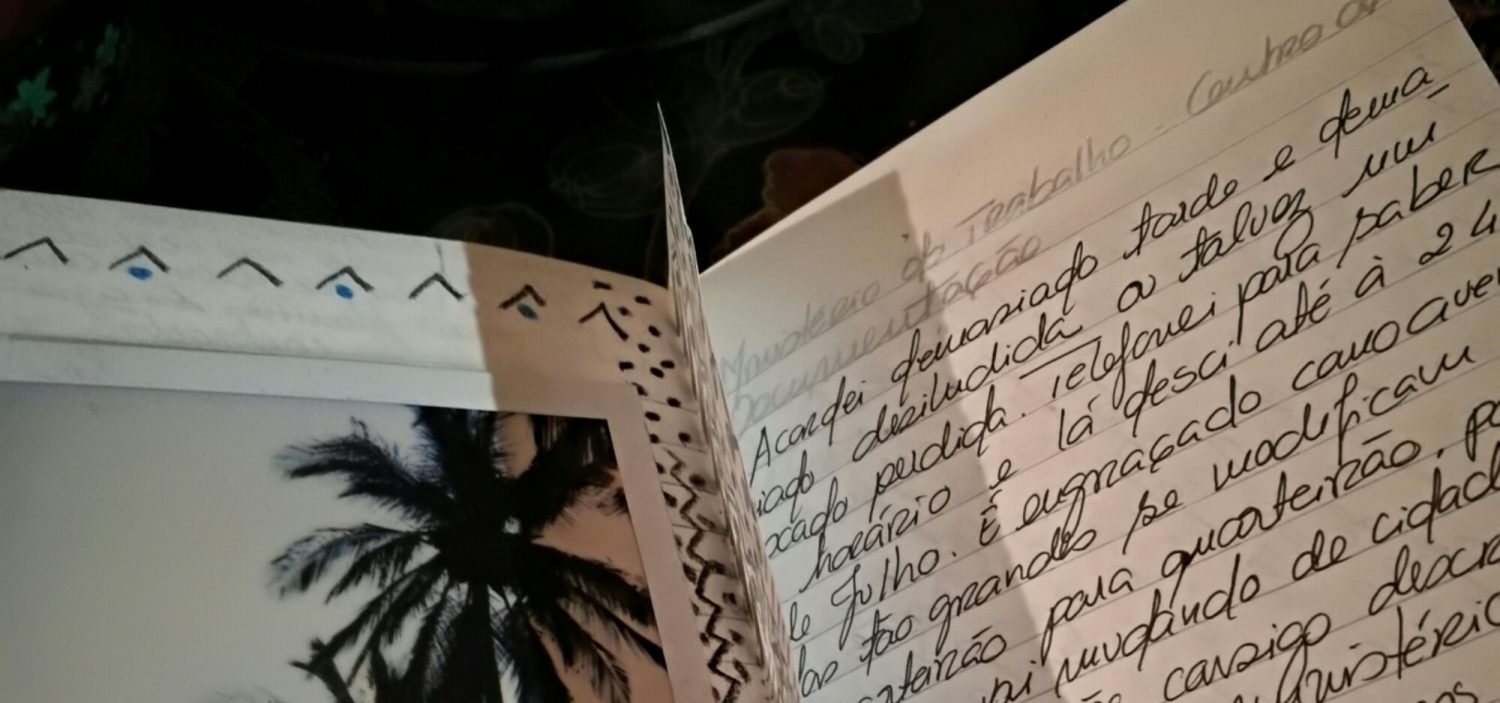 Ministério do Trabalho - Centro de
Documentação
Acordei demasiado tarde e dema
iado desiludida ou talvez um
xado perdida. Telefonei para saber
horário e lá desci até à 24
de Julho. É engraçado como aven
las tão grandes se modificam
arteirão para quarteirão, pa
mudando de cidad
consigo descre
Ministéri